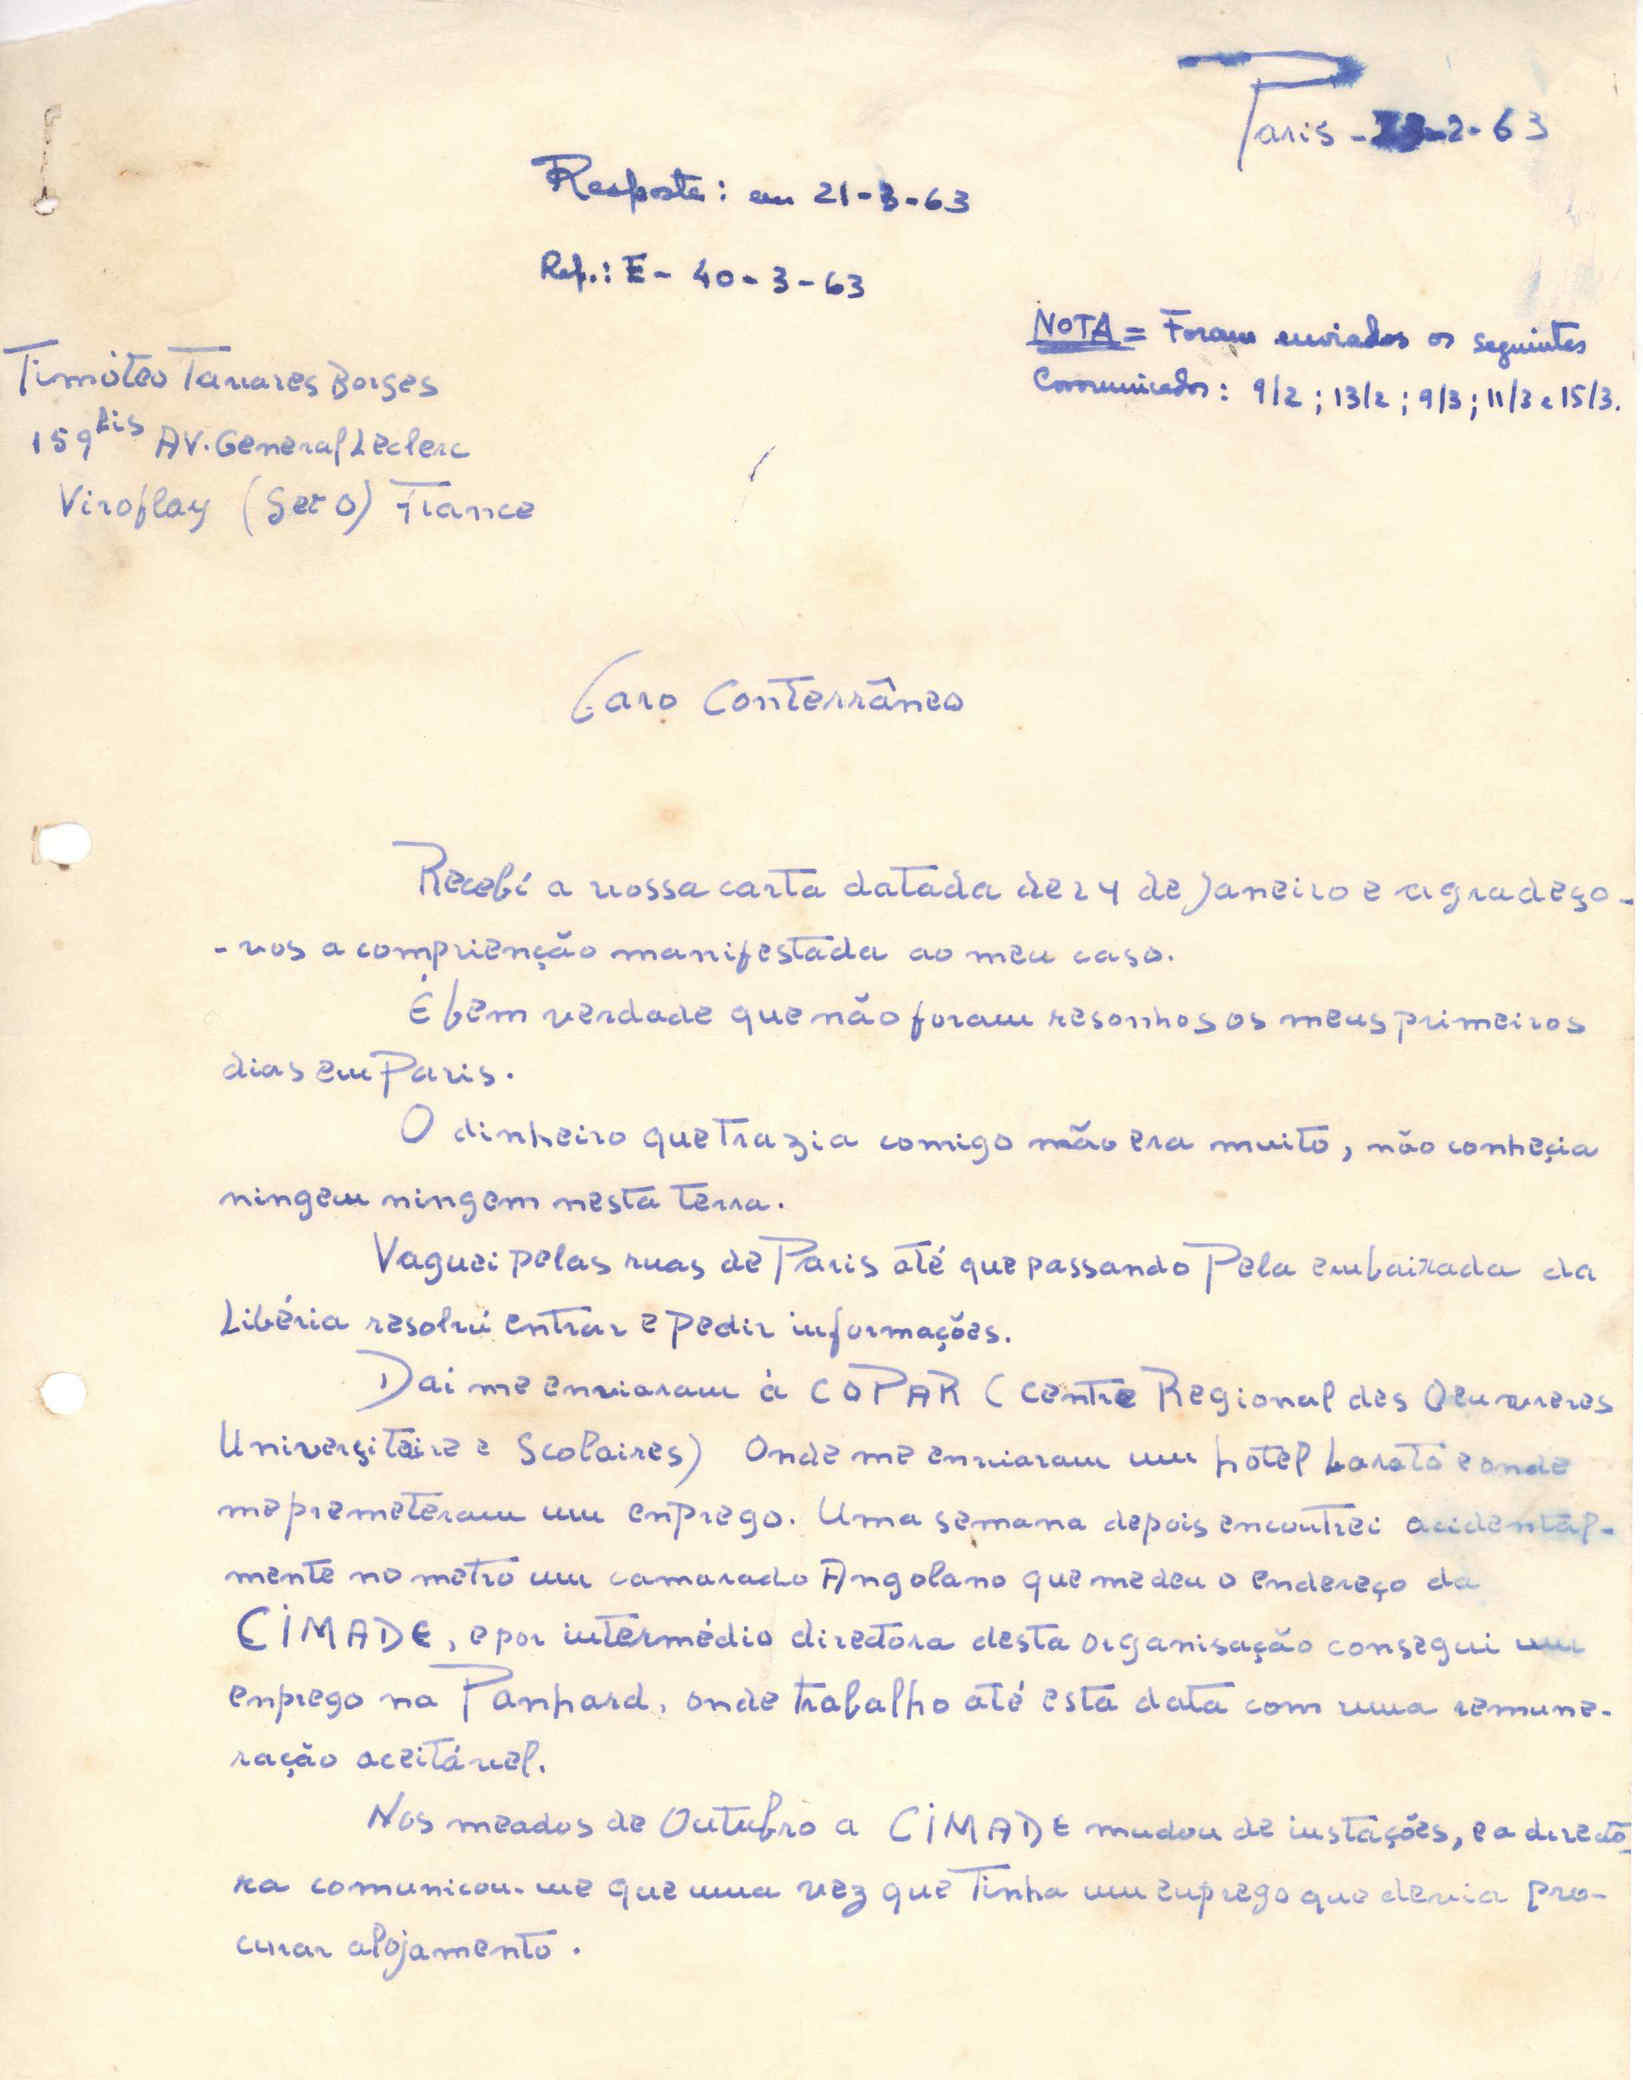 Paris - -2-63
Resposta: em 21-3-63
Ref.: E- 40-3-63
NOTA = Foram enviados os seguintes
Comunicados: 9/2; 13/2; 9/3; 11/3 e 15/3.
Timóteo Tavares Borges
159 bis AV. General Leclerc
Viroflay (S et O) France
Caro Conterrâneo
Recebí a vossa carta datada de 24 de Janeiro e agradeço-
-vos a comprienção manifestada ao meu caso.
É bem verdade que não foram resonhos os meus primeiros
dias em Paris.
O dinheiro que trazia comigo não era muito, não conheçia
ningem ningem nesta terra.
Vaguei pelas ruas de Paris até que passando Pela embaixada da
Libéria resolví entrar e pedir informações.
Dai me enviaram à COPAR (Centre Regional des Oeuvreres
Universitaire e Scolaires) Onde me enviaram um hotel barato e onde
me premeteram um enprego. Uma semana depois encontrei acidental-
mente no metro um camarado Angolano que me deu o endereço da
CIMADE, e por intermédio directora desta organisação consegui um
enprego na Panhard, onde trabalho até esta data com uma remune-
ração aceitável.
Nos meados de Outubro a CIMADE mudou de instações, e a directo-
ra comunicou-me que uma vez que tinha um enprego que devia pro-
curar alojamento.